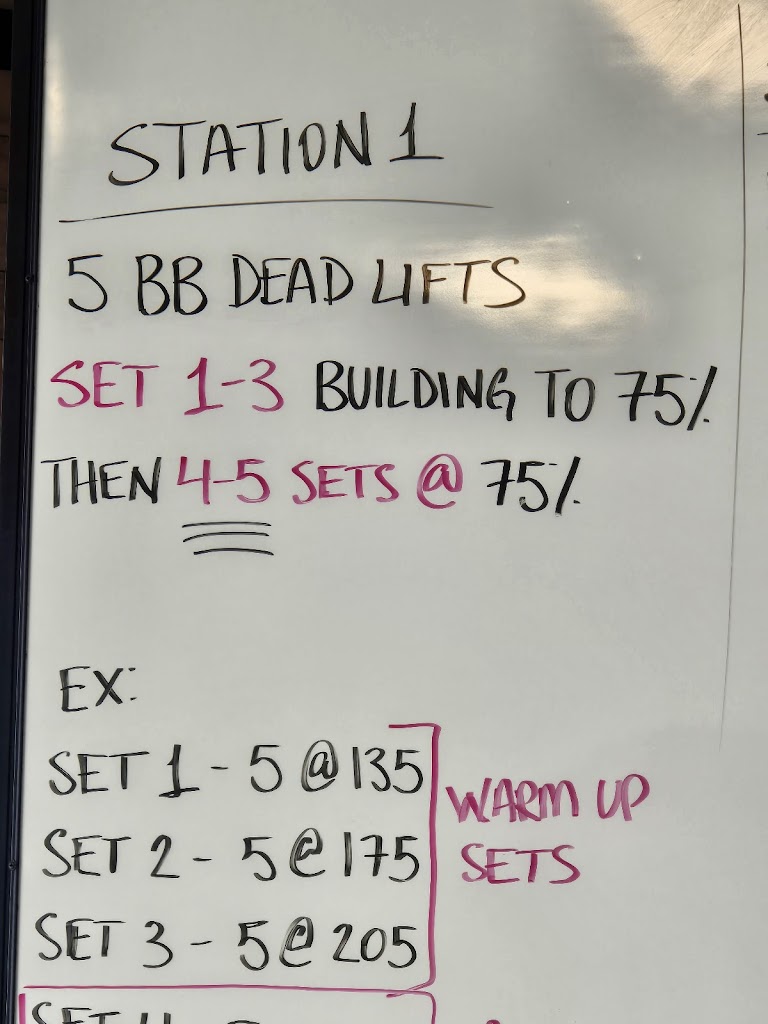 STATION 1
5 BB DEAD LIFTS
SET 1-3 BUILDING TO 75%
THEN 4-5 SETS @ 75%
EX:
SET 1 - 5 @ 135
SET 2 - 5 @ 175
SET 3 - 5 @ 205
WARM UP
SETS
SET 4